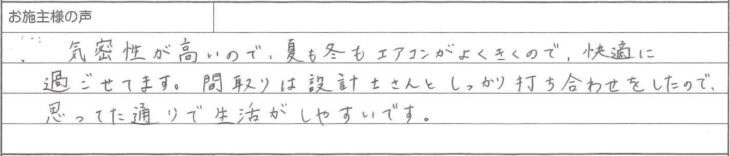 お施主様の声
気密性が高いので、夏も冬もエアコンがよくきくので、快適に
過ごせてます。間取りは設計士さんとしっかり打ち合わせをしたので、
思ってた通りで生活がしやすいです。